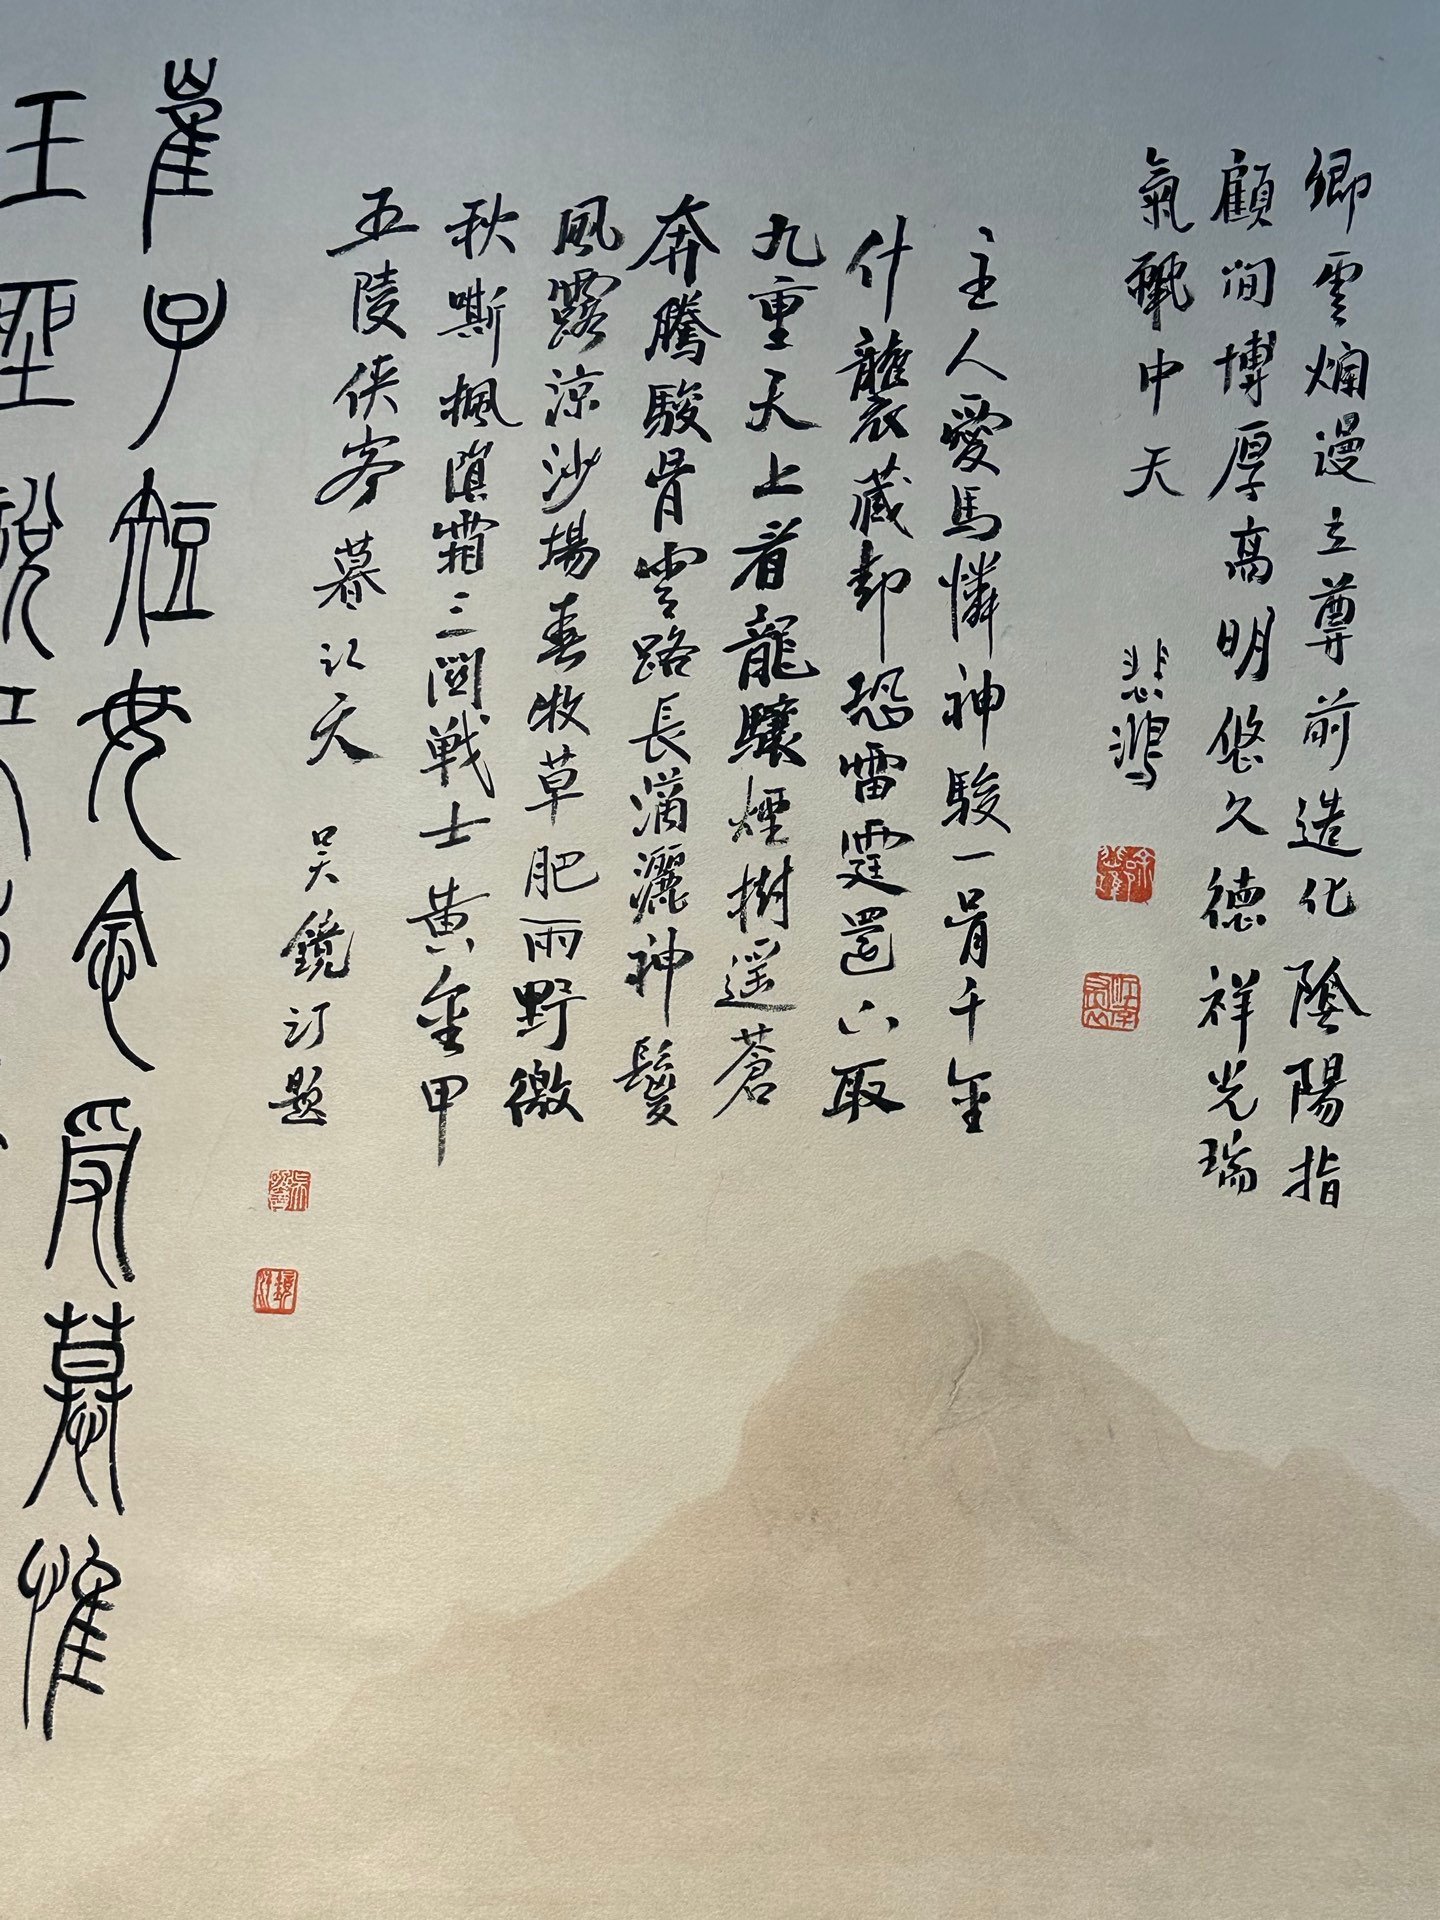 卿雲爛漫立尊前造化陰陽指
顧間博厚高明悠久德祥光瑞
氣亂中天
悲鴻
主人愛馬憐神駿一骨千金
什襲藏却恐雷霆選六取
九重天上看龍驤煙樹遥蒼
奔騰駿骨雲路長瀟灑神鬉
風露涼沙場春牧草肥雨野徼
秋嘶楓隕霜三關戰士黄金甲
五陵俠客暮江天
吳鏡汀題
崔子短安念受慕惟
王聖說